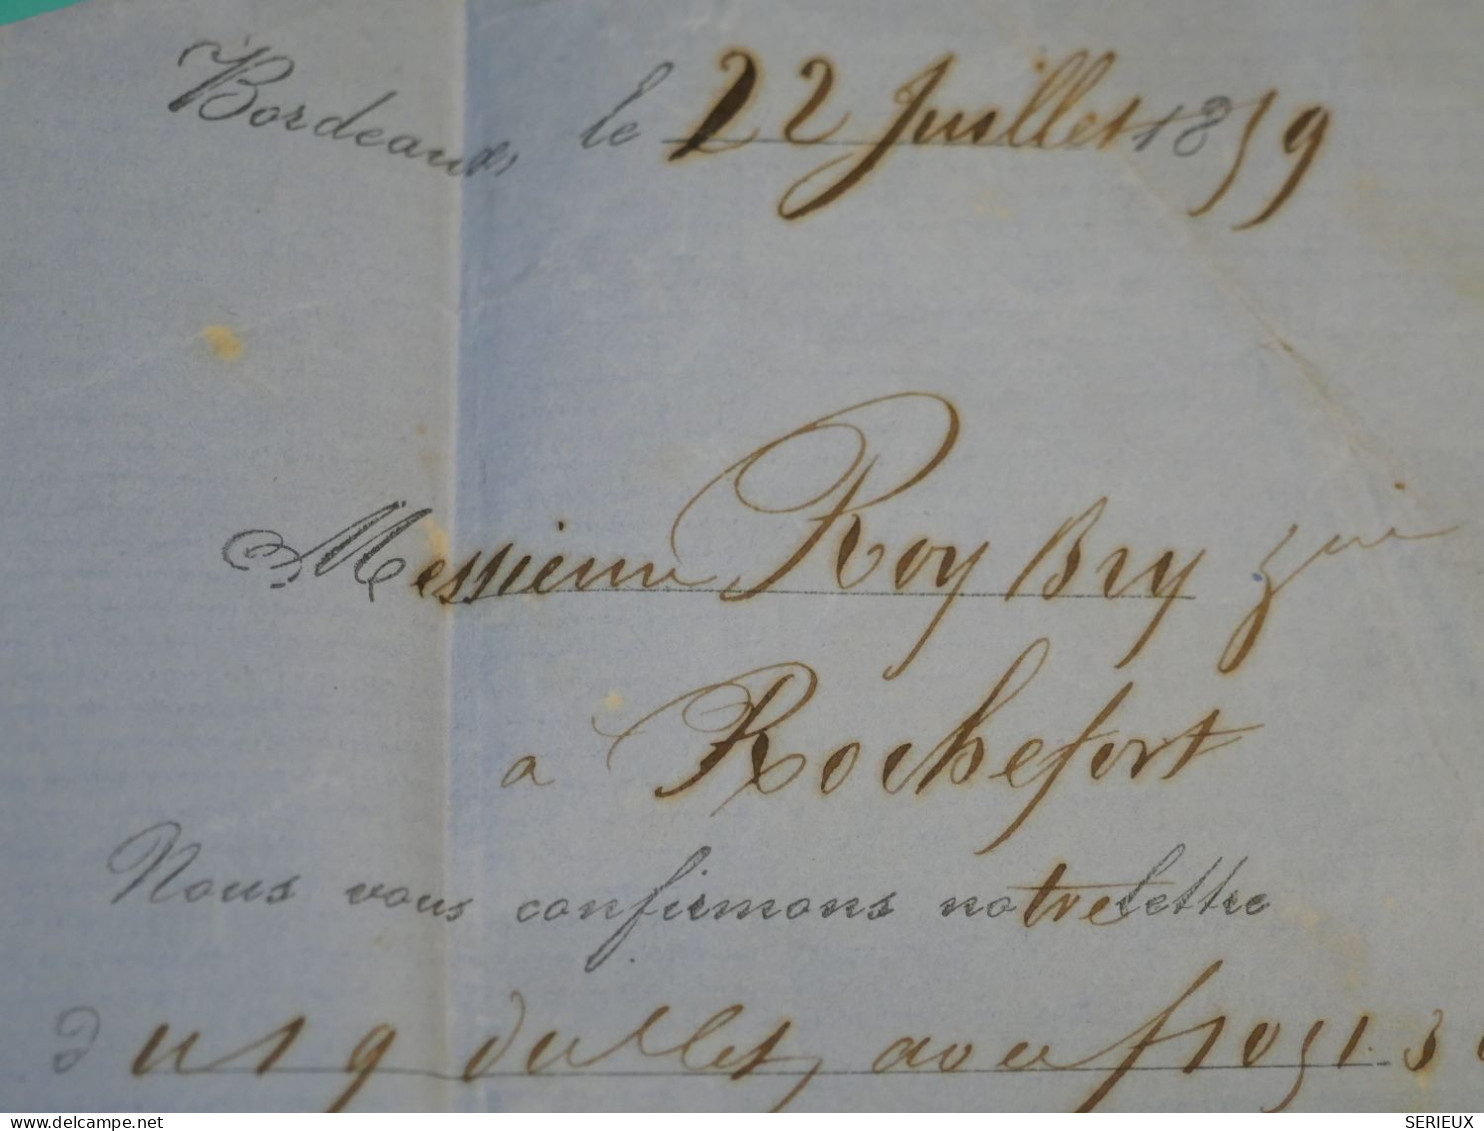 Bordeaux, le 22 Juillet 1859
Messieurs Roy Bry
a Rochefort
Nous vous confirmons notre lettre
du 19 Juillet, avec f
SERIEUX